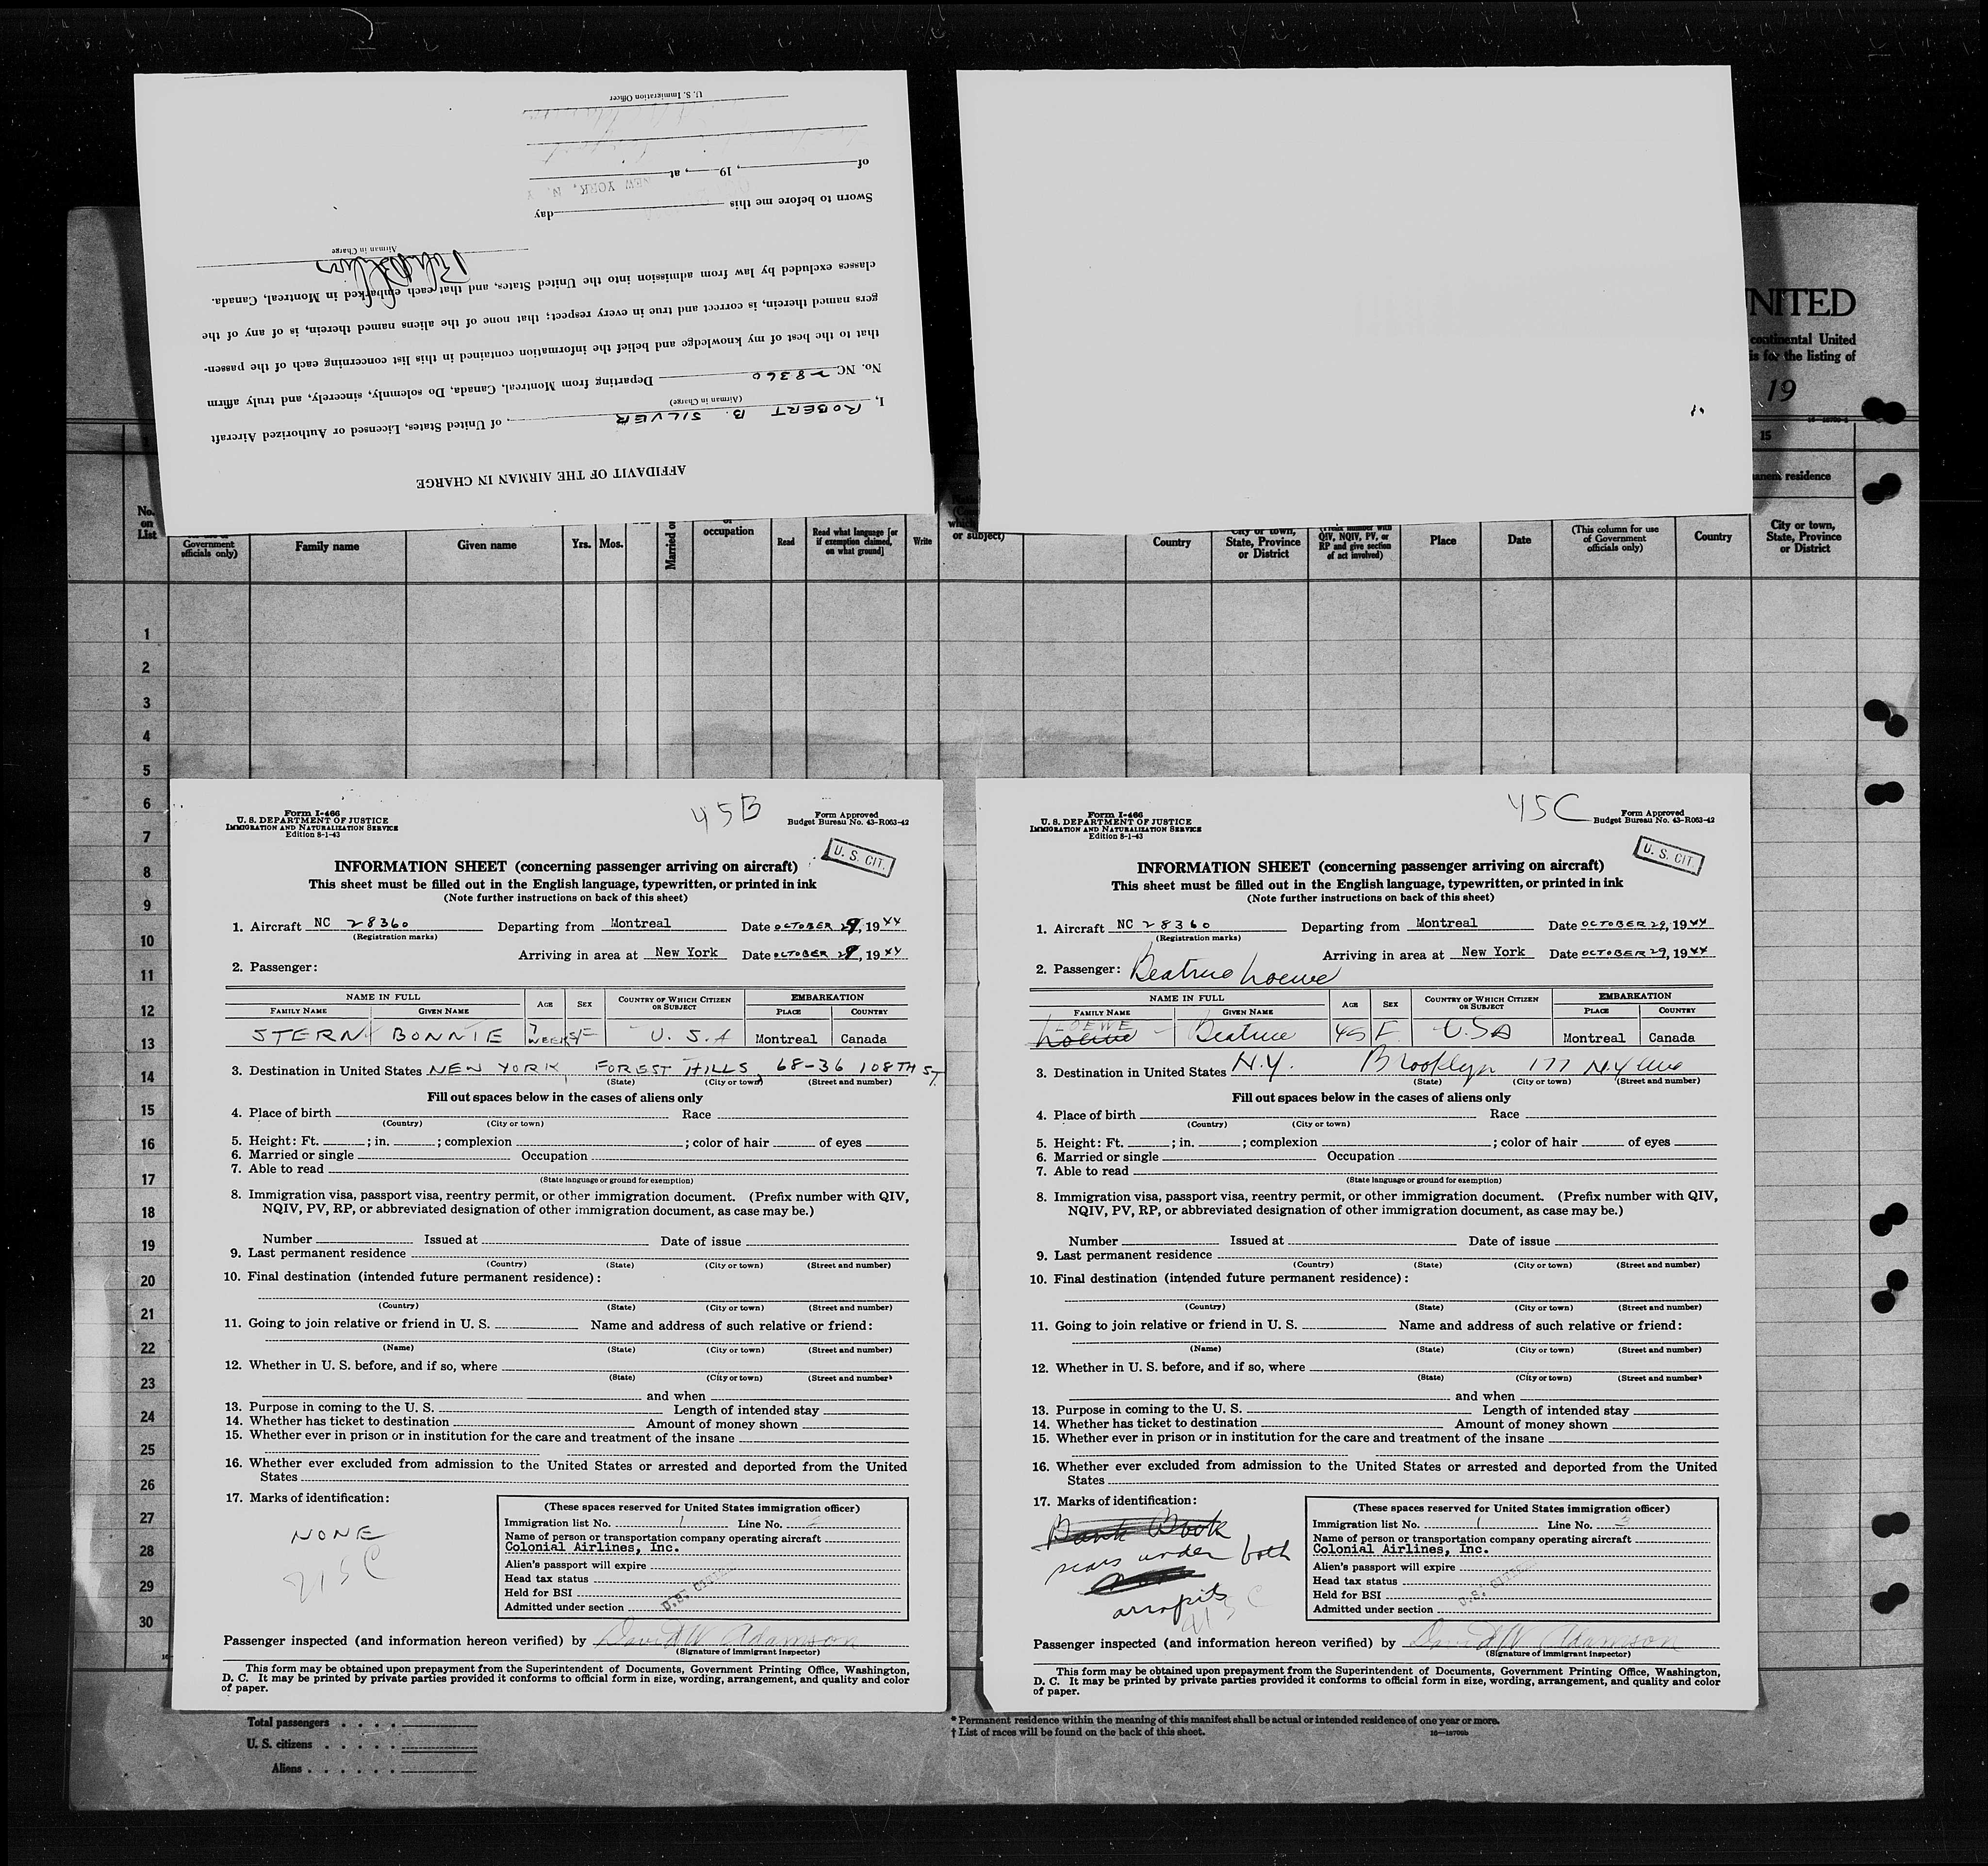 AFFIDAVIT OF THE AIRMAN IN CHARGE
I, ROBERT B. SILVER, of United States, Licensed or Authorized Aircraft
(Airman in Charge)
No. NC 28360 Departing from Montreal, Canada, Do solemnly, sincerely, and truly affirm
that to the best of my knowledge and belief the information contained in this list concerning each of the passen-
gers named therein, is correct and true in every respect; that none of the aliens named therein, is of any of the
classes excluded by law from admission into the United States, and that each embarked in Montreal, Canada.
Airman in Charge
Sworn to before me this day
of , 19 , at
NEW YORK, N. Y
U. S. Immigration Officer
NITED
continental United
is for the listing of
19
15
residence
No. on List
Government officials only)
Family name
Given name
Yrs.
Mos.
Married or
occupation
Read
Read what language [or if exemption claimed, on what ground]
Write
or subject)
Country
City or town, State, Province or District
QIV, NQIV, PV, or RP and give section of act involved)
Place
Date
(This column for use of Government officials only)
Country
City or town, State, Province or District
1
2
3
4
5
6
7
8
9
10
11
12
13
14
15
16
17
18
19
20
21
22
23
24
25
26
27
28
29
30
Form I-466
U. S. DEPARTMENT OF JUSTICE
IMMIGRATION AND NATURALIZATION SERVICE
Edition 8-1-43
45B
Form Approved
Budget Bureau No. 43-R063-42
U. S. CIT.
INFORMATION SHEET (concerning passenger arriving on aircraft)
This sheet must be filled out in the English language, typewritten, or printed in ink
(Note further instructions on back of this sheet)
1. Aircraft NC 28360 Departing from Montreal Date OCTOBER 29, 1944
(Registration marks)
Arriving in area at New York Date OCTOBER 29, 1944
2. Passenger:
NAME IN FULL AGE SEX COUNTRY OF WHICH CITIZEN OR SUBJECT EMBARKATION
FAMILY NAME GIVEN NAME PLACE COUNTRY
STERN BONNIE 7 WEEKS F U. S. A Montreal Canada
3. Destination in United States NEW YORK, FOREST HILLS, 68-36 108TH ST.
(State) (City or town) (Street and number)
Fill out spaces below in the cases of aliens only
4. Place of birth Race
(Country) (City or town)
5. Height: Ft. ; in. ; complexion ; color of hair of eyes
6. Married or single Occupation
7. Able to read
(State language or ground for exemption)
8. Immigration visa, passport visa, reentry permit, or other immigration document. (Prefix number with QIV,
NQIV, PV, RP, or abbreviated designation of other immigration document, as case may be.)
Number Issued at Date of issue
9. Last permanent residence
(Country) (State) (City or town) (Street and number)
10. Final destination (intended future permanent residence):
(Country) (State) (City or town) (Street and number)
11. Going to join relative or friend in U. S. Name and address of such relative or friend:
(Name) (State) (City or town) (Street and number)
12. Whether in U. S. before, and if so, where
(State) (City or town) (Street and number)
and when
13. Purpose in coming to the U. S. Length of intended stay
14. Whether has ticket to destination Amount of money shown
15. Whether ever in prison or in institution for the care and treatment of the insane
16. Whether ever excluded from admission to the United States or arrested and deported from the United
States
17. Marks of identification:
NONE
215C
(These spaces reserved for United States immigration officer)
Immigration list No. 1 Line No.
Name of person or transportation company operating aircraft
Colonial Airlines, Inc.
Alien's passport will expire
Head tax status
Held for BSI
Admitted under section
Passenger inspected (and information hereon verified) by David W Adamson
(Signature of immigrant inspector)
This form may be obtained upon prepayment from the Superintendent of Documents, Government Printing Office, Washington,
D. C. It may be printed by private parties provided it conforms to official form in size, wording, arrangement, and quality and color
of paper.
Form I-466
U. S. DEPARTMENT OF JUSTICE
IMMIGRATION AND NATURALIZATION SERVICE
Edition 8-1-43
45C
Form Approved
Budget Bureau No. 43-R063-42
U. S. CIT.
INFORMATION SHEET (concerning passenger arriving on aircraft)
This sheet must be filled out in the English language, typewritten, or printed in ink
(Note further instructions on back of this sheet)
1. Aircraft NC 28360 Departing from Montreal Date OCTOBER 29, 1944
(Registration marks)
Arriving in area at New York Date OCTOBER 29, 1944
2. Passenger: Beatrice Loewe
NAME IN FULL AGE SEX COUNTRY OF WHICH CITIZEN OR SUBJECT EMBARKATION
FAMILY NAME GIVEN NAME PLACE COUNTRY
LOEWE
Loewe Beatrice 45 F USA Montreal Canada
3. Destination in United States N.Y. Brooklyn 177 N.Y Ave
(State) (City or town) (Street and number)
Fill out spaces below in the cases of aliens only
4. Place of birth Race
(Country) (City or town)
5. Height: Ft. ; in. ; complexion ; color of hair of eyes
6. Married or single Occupation
7. Able to read
(State language or ground for exemption)
8. Immigration visa, passport visa, reentry permit, or other immigration document. (Prefix number with QIV,
NQIV, PV, RP, or abbreviated designation of other immigration document, as case may be.)
Number Issued at Date of issue
9. Last permanent residence
(Country) (State) (City or town) (Street and number)
10. Final destination (intended future permanent residence):
(Country) (State) (City or town) (Street and number)
11. Going to join relative or friend in U. S. Name and address of such relative or friend:
(Name) (State) (City or town) (Street and number)
12. Whether in U. S. before, and if so, where
(State) (City or town) (Street and number)
and when
13. Purpose in coming to the U. S. Length of intended stay
14. Whether has ticket to destination Amount of money shown
15. Whether ever in prison or in institution for the care and treatment of the insane
16. Whether ever excluded from admission to the United States or arrested and deported from the United
States
17. Marks of identification:
Bank Book
scars under both
armpits
(These spaces reserved for United States immigration officer)
Immigration list No. 1 Line No. 3
Name of person or transportation company operating aircraft
Colonial Airlines, Inc.
Alien's passport will expire
Head tax status
Held for BSI
Admitted under section
Passenger inspected (and information hereon verified) by David W Adamson
(Signature of immigrant inspector)
This form may be obtained upon prepayment from the Superintendent of Documents, Government Printing Office, Washington,
D. C. It may be printed by private parties provided it conforms to official form in size, wording, arrangement, and quality and color
of paper.
Total passengers
U. S. citizens
Aliens
* Permanent residence within the meaning of this manifest shall be actual or intended residence of one year or more.
† List of races will be found on the back of this sheet.